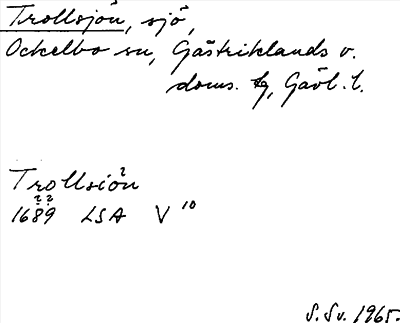 Trollsjön, sjö,
Ockelbo sn, Gästriklands v.
doms. tg, Gävl. l.
Trollsiön
1689 LSA V 10
S. Sv. 1965.